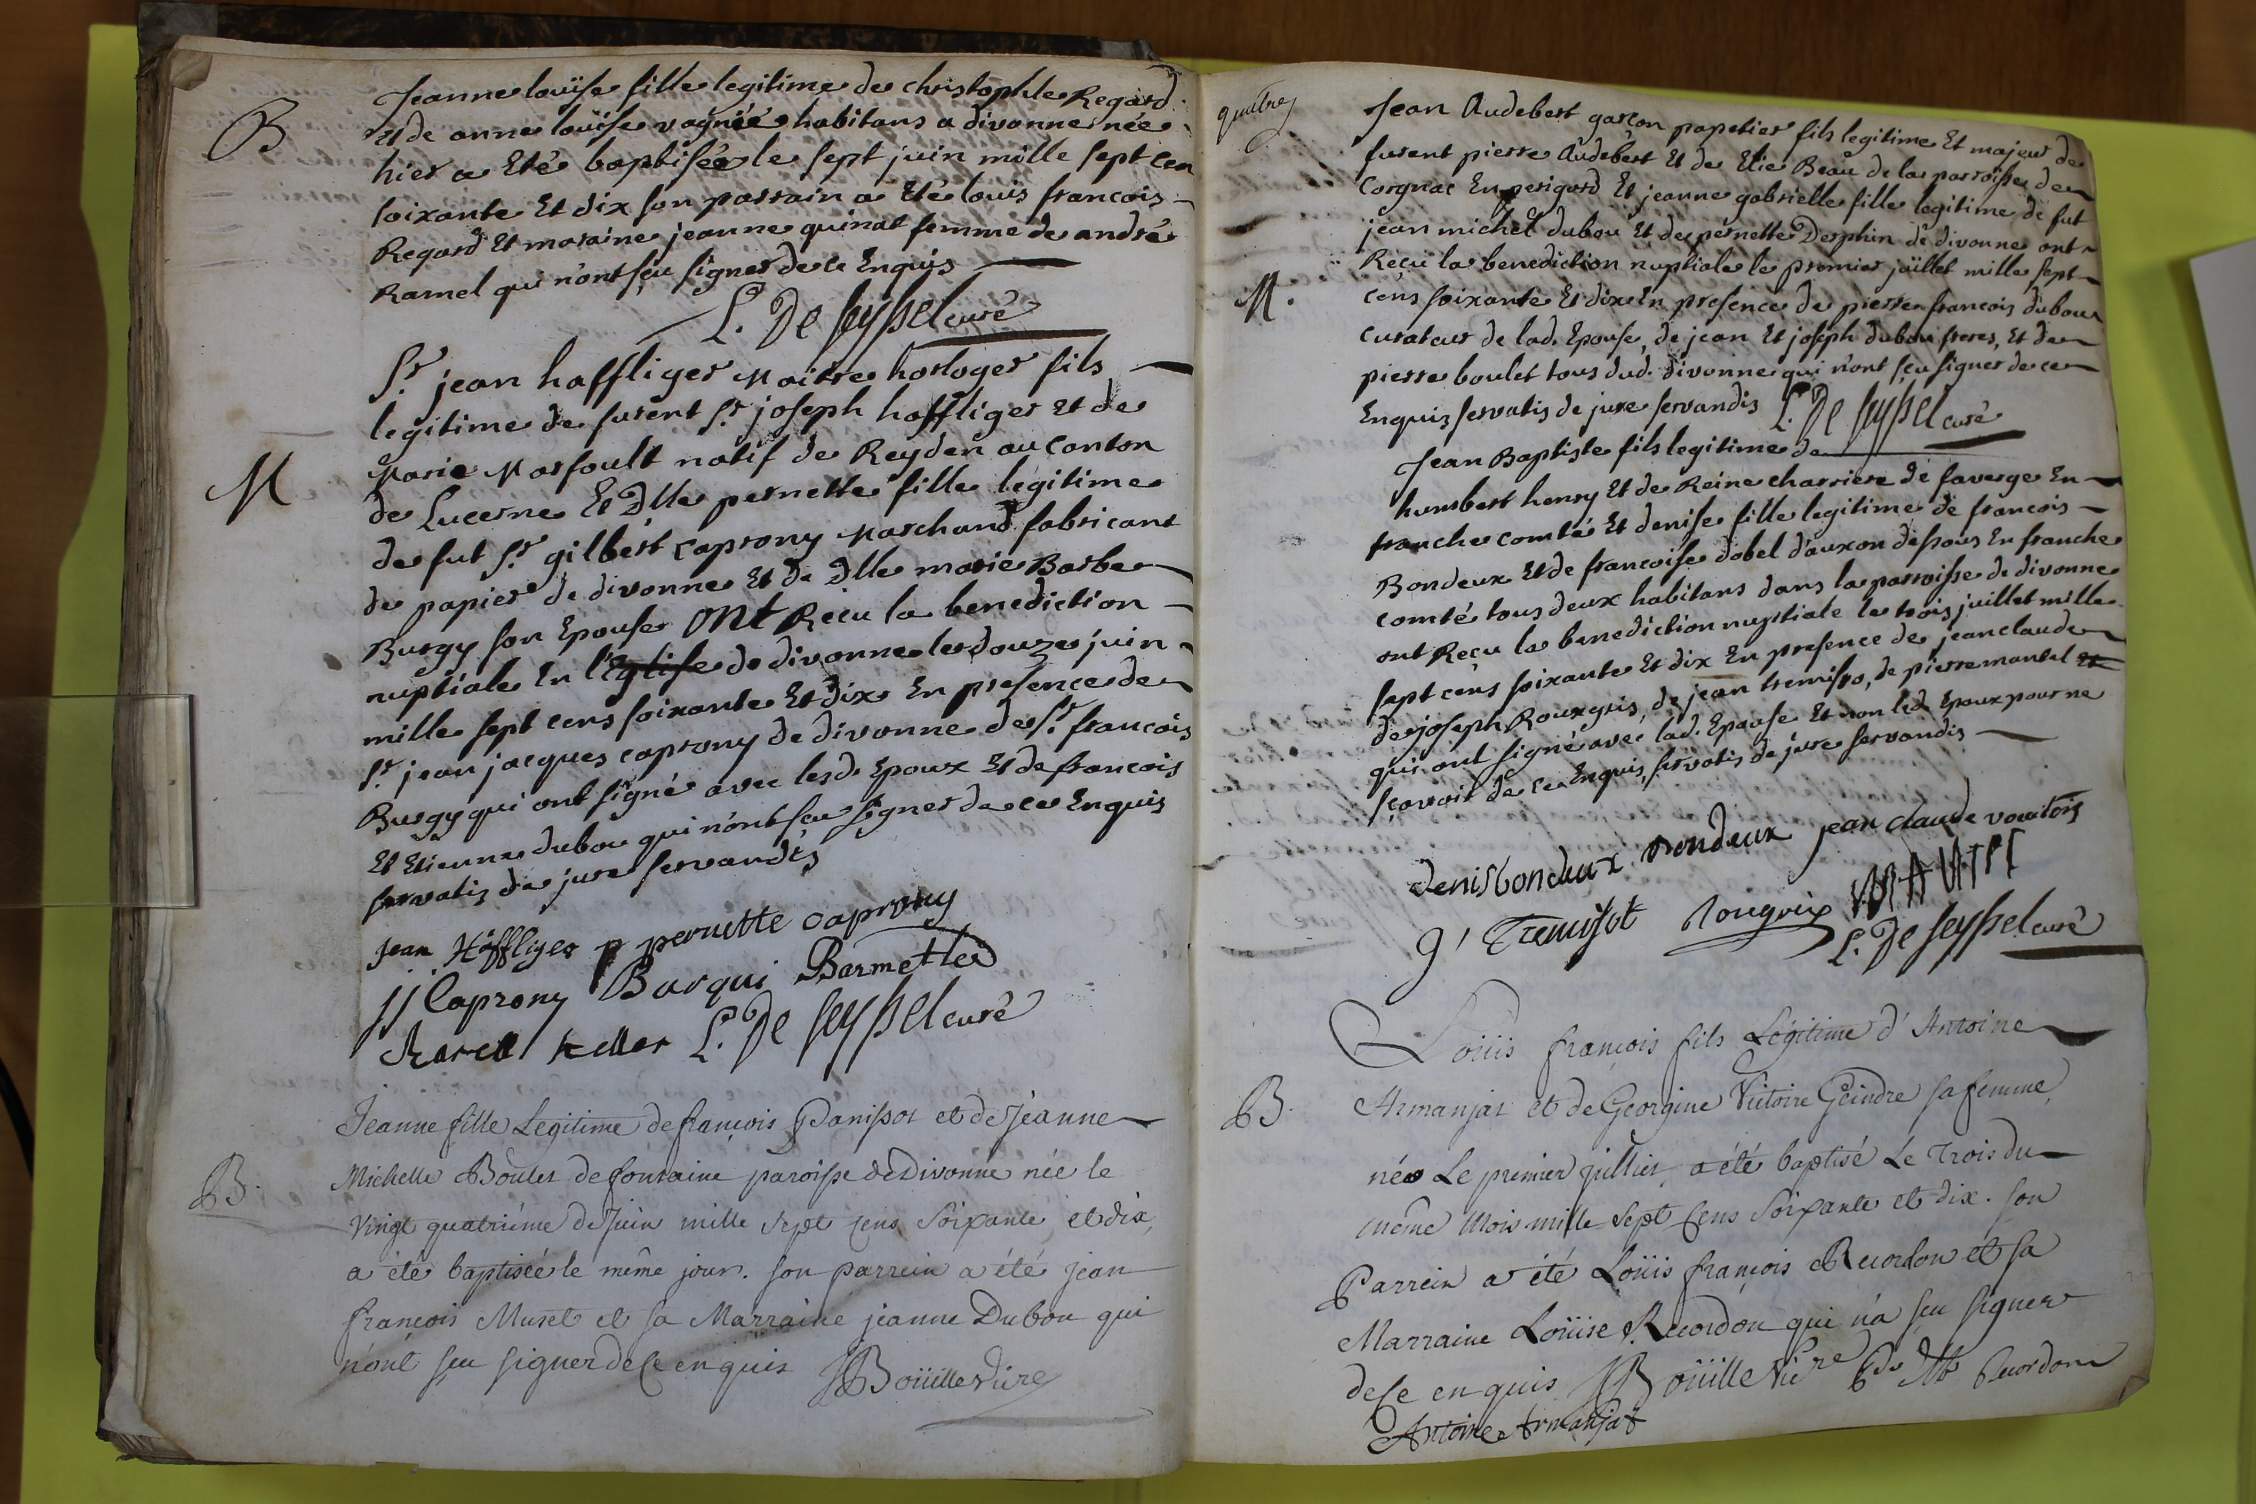 B
Jeanne louïse fille legitime de christophle Regard
et de anne louïse vagnié habitans a divonne née
hier a Eté baptisée le sept juin mille sept cen
soixante Et dix son parrain a Eté louis francois
Regard Et maraine jeanne quinat femme de andré
Ramel qui n'ont sçu signer de ce Enquis
L. De seyssel curé
M
Sr. jean haffliger Maitre horloger fils
legitime de furent Sr. joseph haffliger Et de
Marie Marfoult natif de Reyden au Canton
de Lucerne Et Dlle pernette fille legitime
de fut Sr. gilbert caprony Marchand fabricant
de papier de divonne Et de Dlle marie Barbe
Burgy son Epouse Ont Reçu la benediction
nuptiale En l'Eglise de divonne le douze juin
mille sept cens soixante Et dix En presence de
Sr. jean jacques caprony de divonne de Sr. francois
Burgy qui ont signé avec lesd. Epoux Et de francois
Et Etienne dubou qui n'ont sçu signer de ce Enquis
servatis de jure servandis
Jean Häffliger p pernette caprony
JJ Caprony Burqui Barmettler
keller L. De seyssel curé
B.
Jeanne fille Legitime de françois Panissot et de Jeanne
Michelle Boulet de fontaine paroisse de Divonne née le
vingt quatrième de Juin mille sept cens Soixante, et dix,
a été baptisée le même jour. son parrein a été jean
françois Muset et sa Marraine jeanne Dubou qui
n'ont sçu signer de Ce enquis JBoüille Vicre
quatre
Jean Audebert garcon papetier fils legitime Et majeur de
furent pierre Audebert Et de Elie Beau de la parroisse de
Corgnac En perigord Et jeanne gabrielle fille legitime de fut
jean michel dubou Et de pernette Desphin de divonne ont
M.
Reçu la benediction nuptiale le premier juillet mille sept
cens soixante Et dix En presence de pierre francois dubou
curateur de lad. Epouse, de jean Et joseph dubou freres, Et de
pierre boulet tous dud. divonne qui n'ont sçu signer de ce
Enquis servatis de jure servandis L. De seyssel curé
Jean Baptiste fils legitime de
humbert henry Et de Reine charriere de faverge En
franche comté Et denise fille legitime de francois
Bondeux Et de francoise dobel d'auxon dessous En franche
comté tous deux habitans dans la parroisse de divonne
ont Reçu la benediction nuptiale le trois juillet mille
sept cens soixante Et dix En presence de jean claude
de joseph Rouxgris, de jean tremiso, de pierre mantel Et
qui ont signé avec lad. Epouse Et non led. Epoux pour ne
sçavoir de ce Enquis, servatis de jure servandis
denis bondeux bondeux jean claude
g. Tremisot Rougrix
L. De seyssel curé
B.
Loüis françois fils Légitime d'Antoine
Armanjat et de Georgine Victoire Geindre sa femme,
né Le premier juillet, a été baptisé Le Trois du
même Mois mille Sept Cens Soixante et dix. son
Parrein a été Loüis françois Recordon et sa
Marraine Loüise Recordon qui n'a sçu signer
de Ce enquis JBoüille Vicre Recordon
Antoine Armanjat